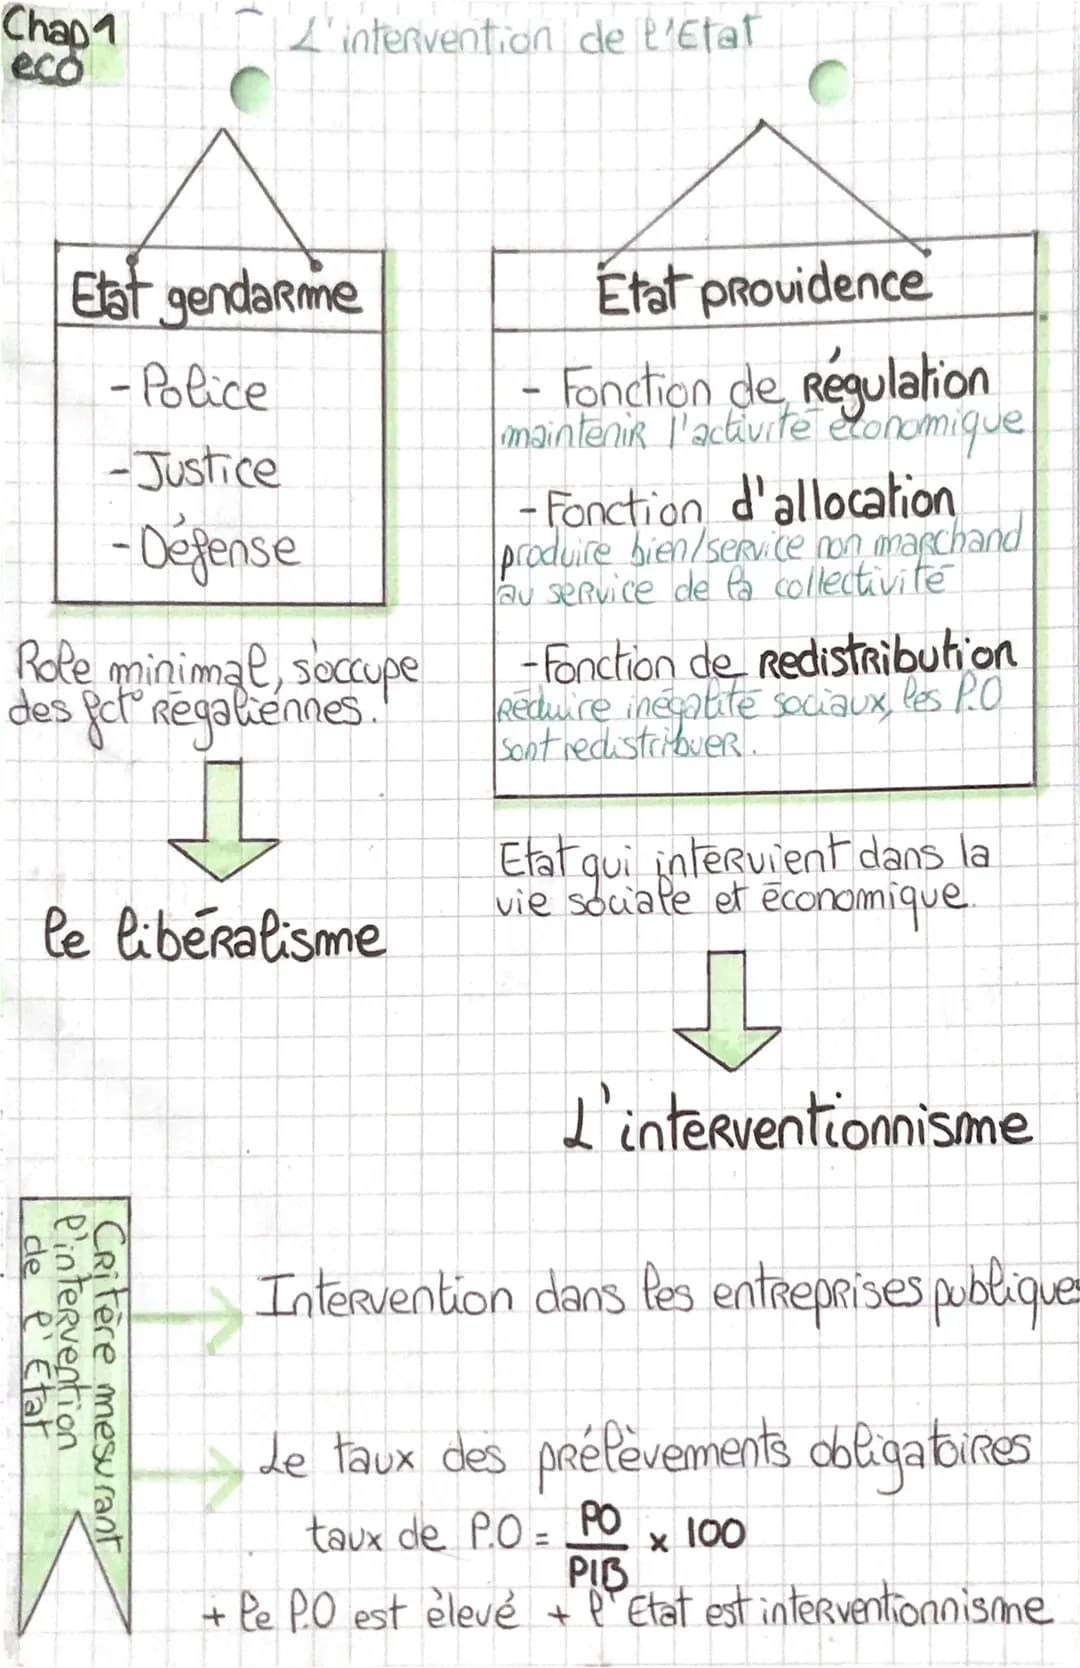 Chap 1
eco
L'intervention de l'Etat
Etat gendarme
- Police
- Justice
- Défense
Role minimal, s'occupe
des fct° Régaliennes.
le libéralisme
Etat providence
- Fonction de Régulation
maintenir l'activité économique
- Fonction d'allocation
produire bien/service non marchand
au service de la collectivité
- Fonction de Redistribution
Réduire inégalité sociaux, les P.O
sont redistribuer.
Etat qui intervient dans la
vie sociale et économique.
L'interventionnisme
Critère mesurant
l'intervention
de l'Etat
Intervention dans les entreprises publiques
Le taux des prélèvements obligatoires
taux de P.O = PO / PIB x 100
+ le P.O est élevé + l'Etat est interventionnisme